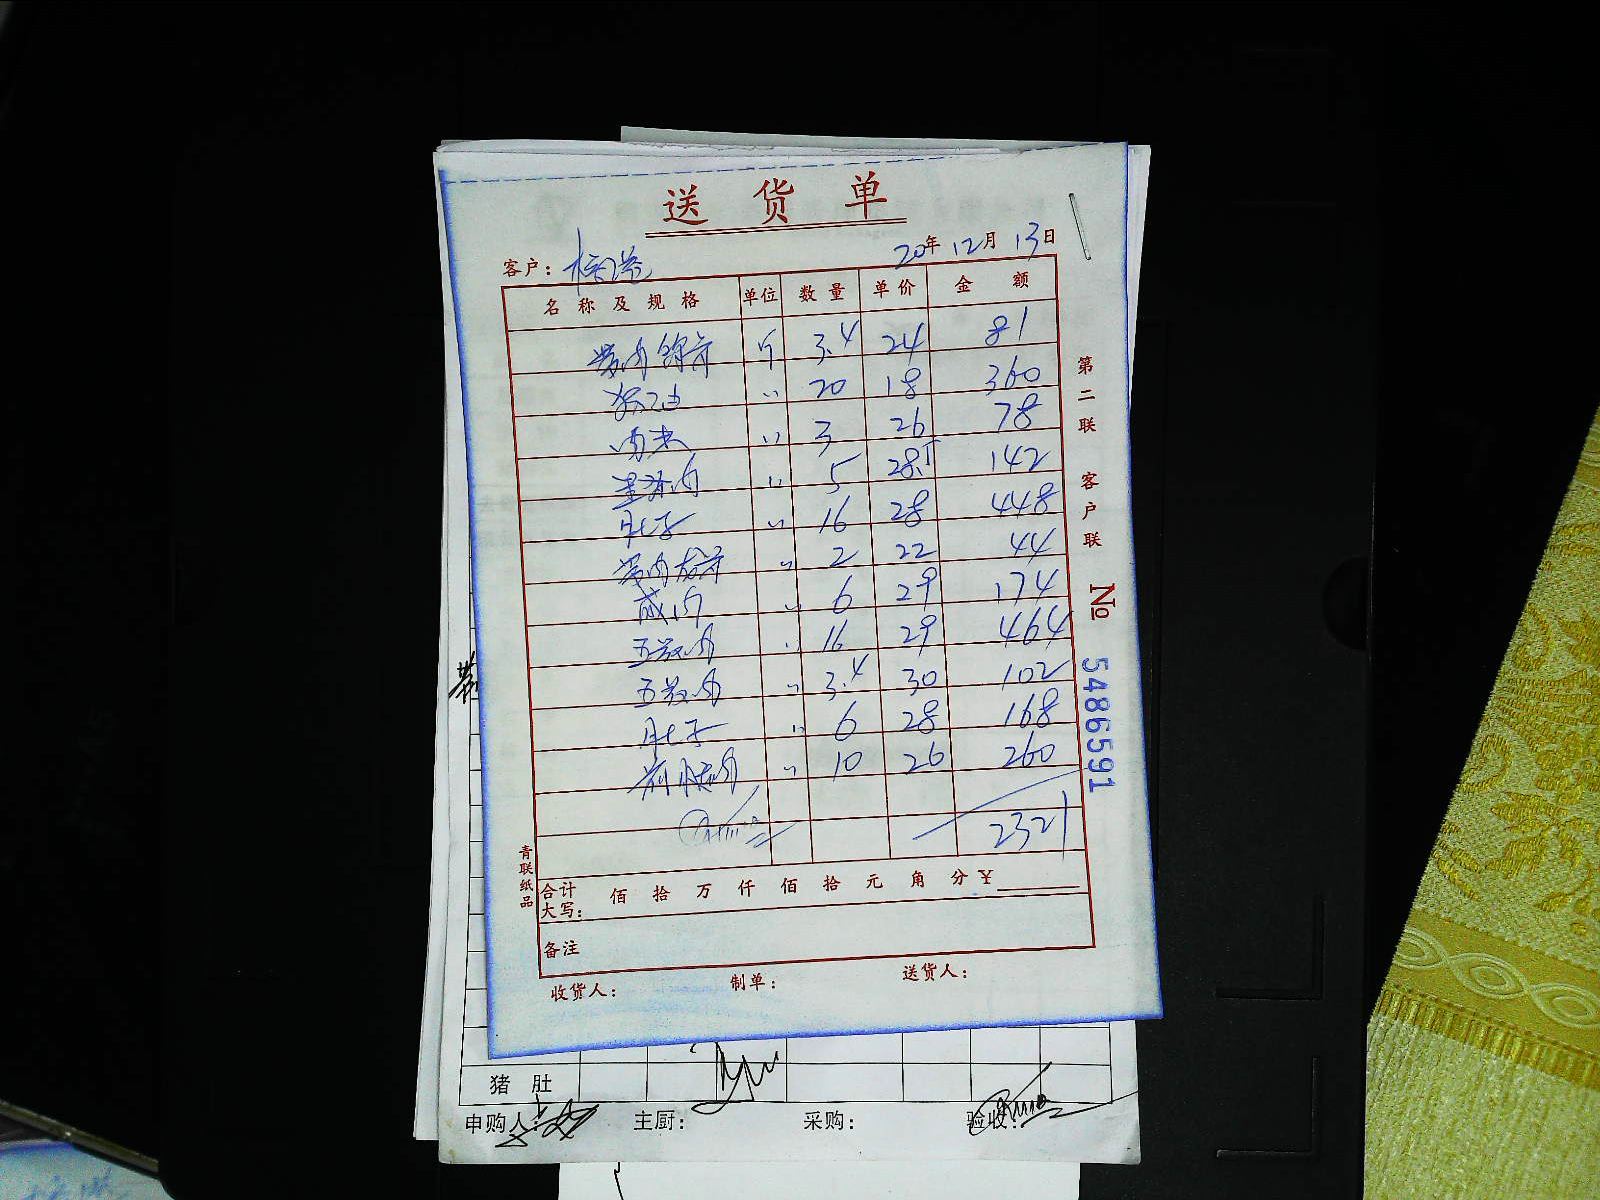 送货单
客户: 20年12月13日
名称及规格 单位 数量 单价 金额
带肉 斤 3.4 24 81
猪油 〃 20 18 360
肉 〃 3 26 78
肉 〃 5 28.5 142
肚子 〃 16 28 448
带肉龙骨 〃 2 22 44
肉 〃 6 29 174
五花肉 〃 16 29 464
五花肉 〃 3.4 30 102
肚子 〃 6 28 168
前腿肉 〃 10 26 260
2321
合计大写: 佰 拾 万 仟 佰 拾 元 角 分 ¥
备注
收货人: 制单: 送货人:
第二联 客户联
№ 5486591
青联纸品
猪肚
申购人: 主厨: 采购: 验收: